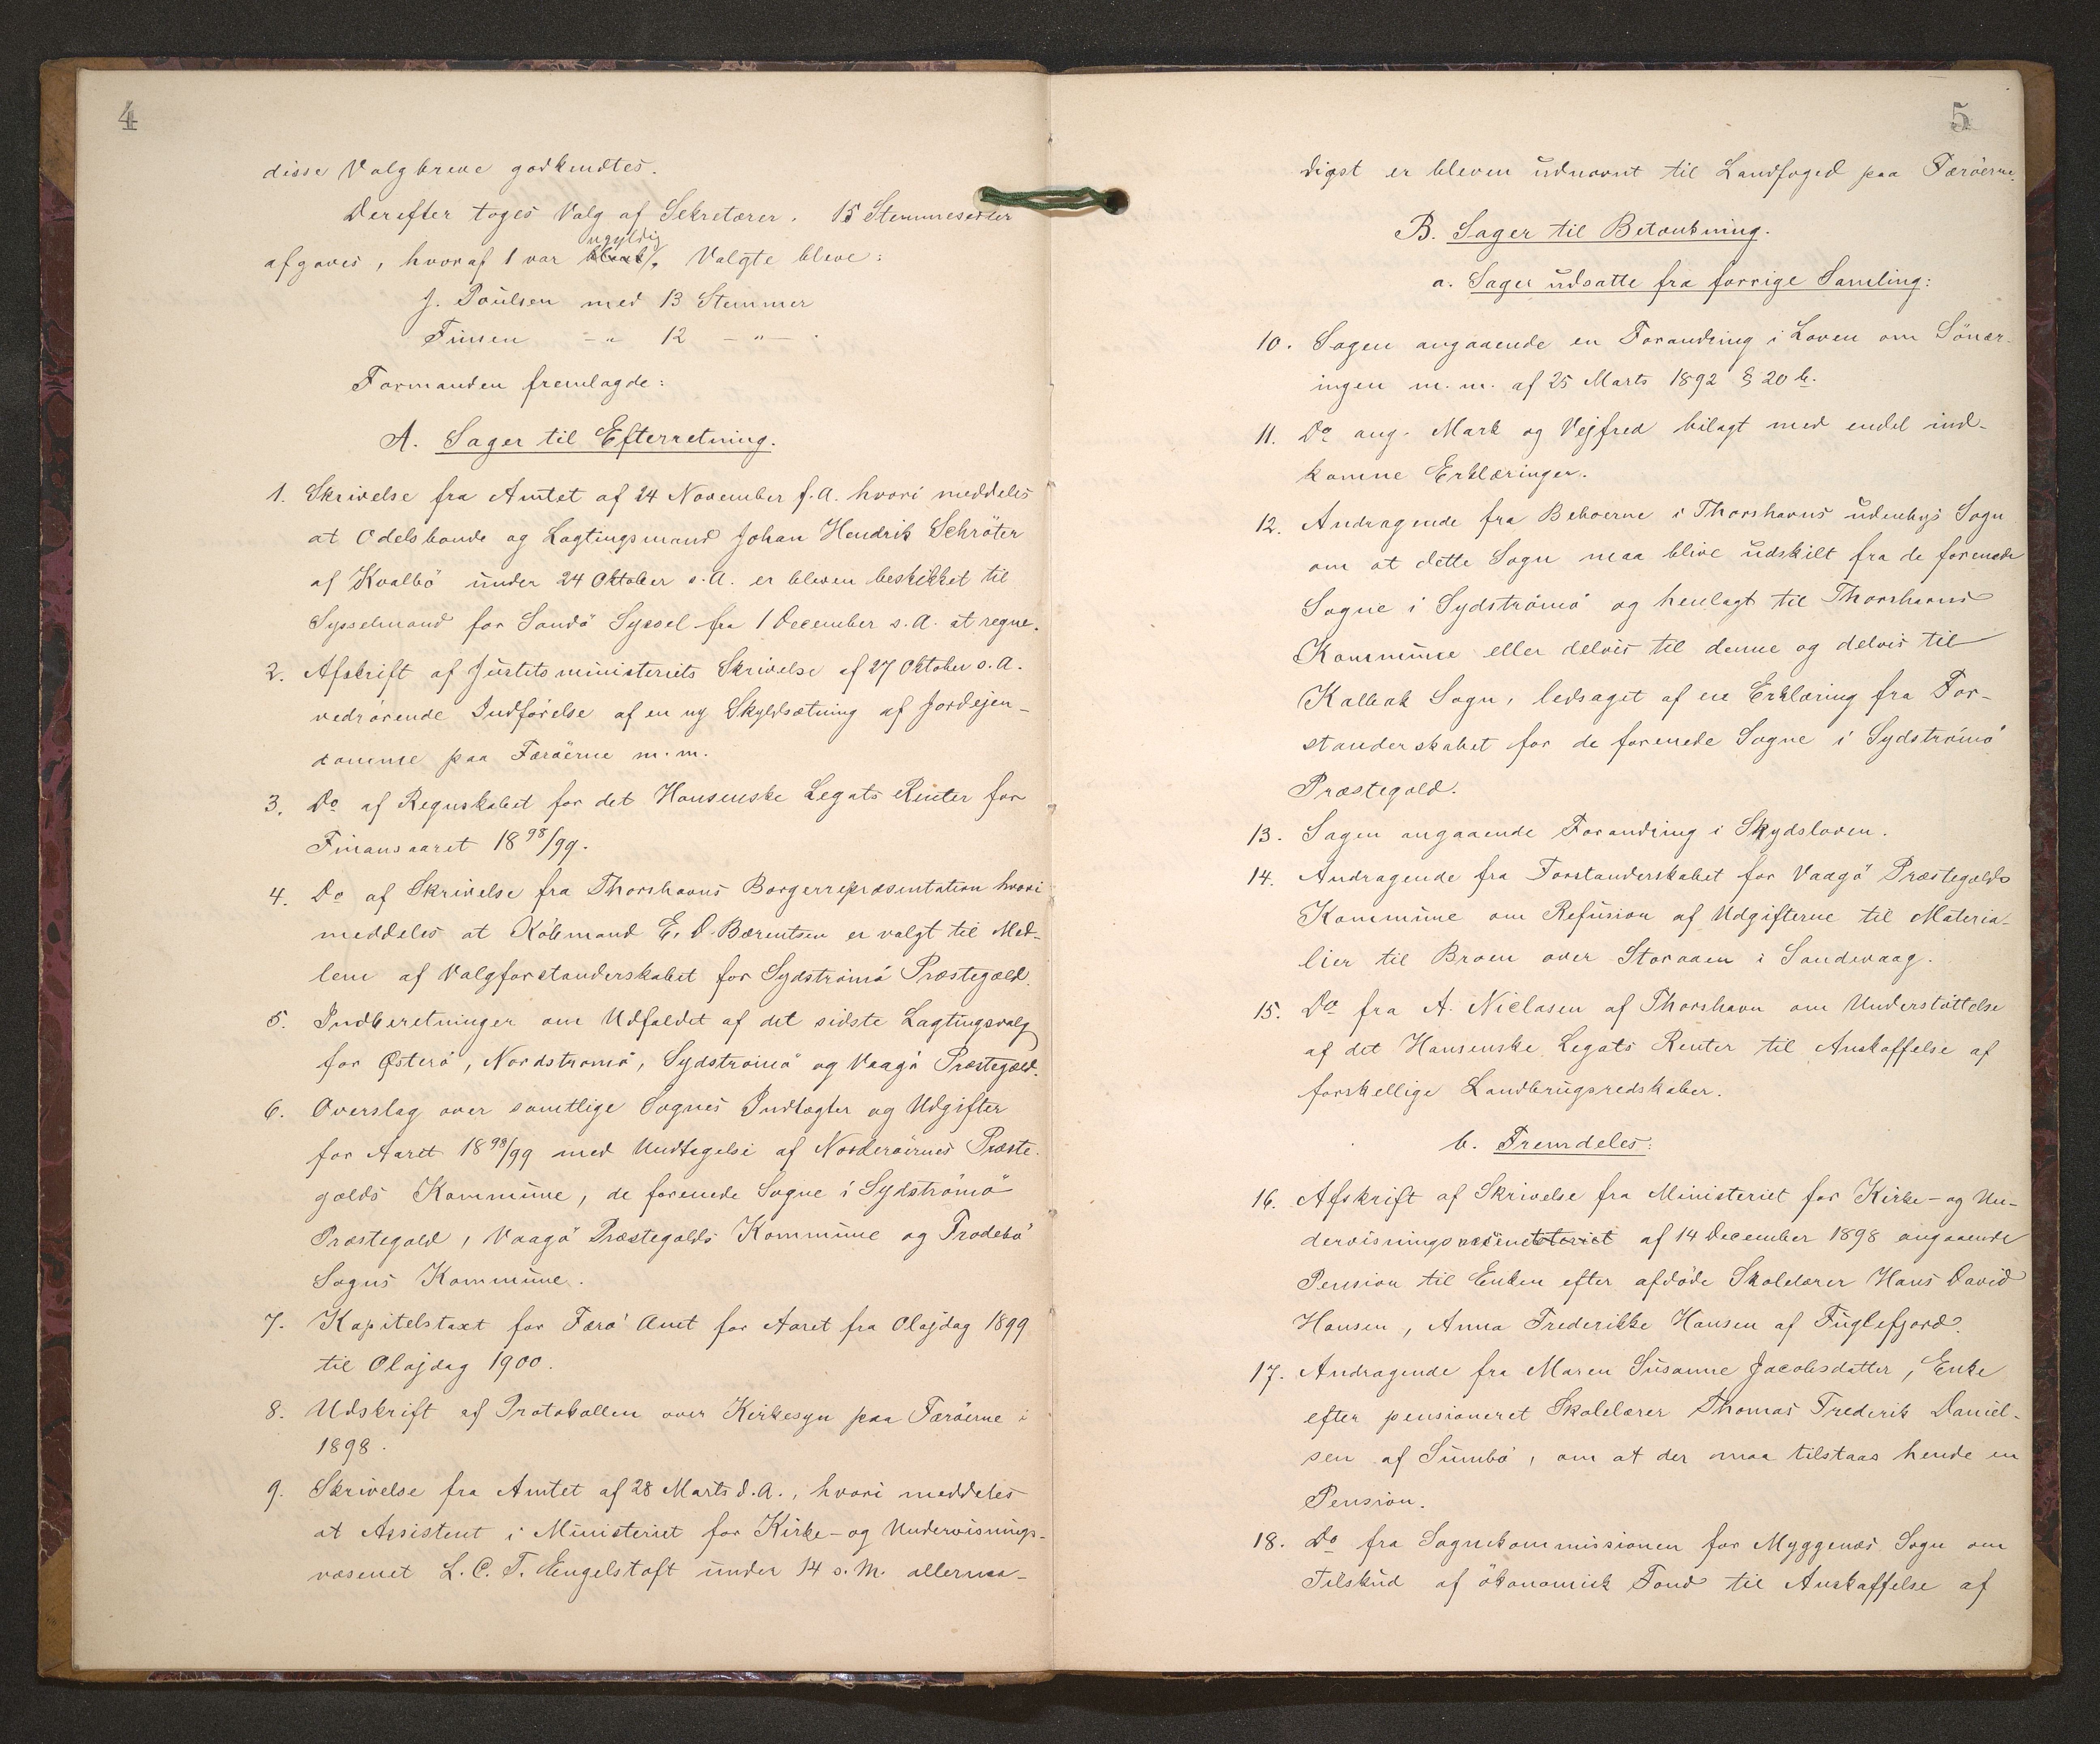 4
disse Valgbreve godkendtes.
Derefter toges Valg af Sekretærer. 15 Stemmesedler
ugyldig
afgaves, hvoraf 1 var blank. Valgte bleve:
J. Poulsen med 13 Stemmer
Finsen -„ 12 -„-
Formanden fremlagde:
A. Sager til Efterretning.
1. Skrivelse fra Amtet af 24 November f.A. hvori meddeles
at Odelsbonde og Lagtingsmand Johan Hendrik Schröter
af Kvalbö under 24 Oktober s.A. er bleven beskikket til
Sysselmand for Sandö Syssel fra 1 December s.A. at regne.
2. Afskrift af Justitsministeriets Skrivelse af 27 Oktober s.A.
vedrörende Indförelse af en ny Skyldsætning af Jordejen-
domme paa Færöerne m.m.
3. Do af Regnskabet for det Hansenske Legats Renter for
Finansaaret 1898/99.
4. Do af Skrivelse fra Thorshavns Borgerrepræsentation hvori
meddeles at Köbmand E. D Bærentsen er valgt til Med-
lem af Valgforstanderskabet for Sydströmö Præstegæld.
5. Indberetninger om Udfaldet af det sidste Lagtingsvalg
for Österö, Nordströmö, Sydströmö og Vaagö Præstegæld.
6. Overslag over samtlige Sognes Indtægter og Udgifter
for Aaret 1898/99 med Undtagelse af Norderöernes Præste-
gælds Kommune, de forenede Sogne i Sydströmö
Præstegæld, Vaagö Præstegælds Kommune og Frodebö
Sogns Kommune.
7. Kapitelstaxt for Færö Amt for Aaret fra Olajdag 1899
til Olajdag 1900.
8. Udskrift af Protokollen over Kirkesyn paa Færöerne i
1898.
9. Skrivelse fra Amtet af 28 Marts d.A., hvori meddeles
at Assistent i Ministeriet for Kirke- og Undervisnings-
væsenet L. C. F. Engelstoft under 14 s.M. allernaa-
5
digst er bleven udnævnt til Landfoged paa Færöerne.
B. Sager til Betænkning.
a. Sager udsatte fra forrige Samling:
10. Sagen angaaende en Forandring i Loven om Sönær-
ingen m.m. af 25 Marts 1892 § 20 b.
11. Do ang. Mark og Vejfred bilagt med endel ind-
komne Erklæringer.
12. Andragende fra Beboerne i Thorshavns udenbys Sogn
om at dette Sogn maa blive udskilt fra de forenede
Sogne i Sydströmö og henlagt til Thorshavns
Kommune eller delvis til denne og delvis til
Kalbak Sogn, ledsaget af en Erklæring fra For-
standerskabet for de forenede Sogne i Sydströmö
Præstegæld.
13. Sagen angaaende Forandring i Skydsloven.
14. Andragende fra Forstanderskabet for Vaagö Præstegælds
Kommune om Refusion af Udgifterne til Materia-
lier til Broen over Storaaen i Sandevaag.
15. Do fra A. Niclasen af Thorshavn om Understöttelse
af det Hansenske Legats Renter til Anskaffelse af
forskellige Landbrugsredskaber.
b. Fremdeles:
16. Afskrift af Skrivelse fra Ministeriet for Kirke- og Un-
dervisningsvæsenet af 14 December 1898 angaaende
Pension til Enken efter afdöde Skolelærer Hans David
Hansen, Anna Frederikke Hansen af Fuglefjord.
17. Andragende fra Maren Susanne Jacobsdatter, Enke
efter pensioneret Skolelærer Thomas Frederik Daniel-
sen af Sumbö, om at der maa tilstaas hende en
Pension.
18. Do fra Sognekommissionen for Myggenæs Sogn om
Tilskud af ökonomisk Fond til Anskaffelse af